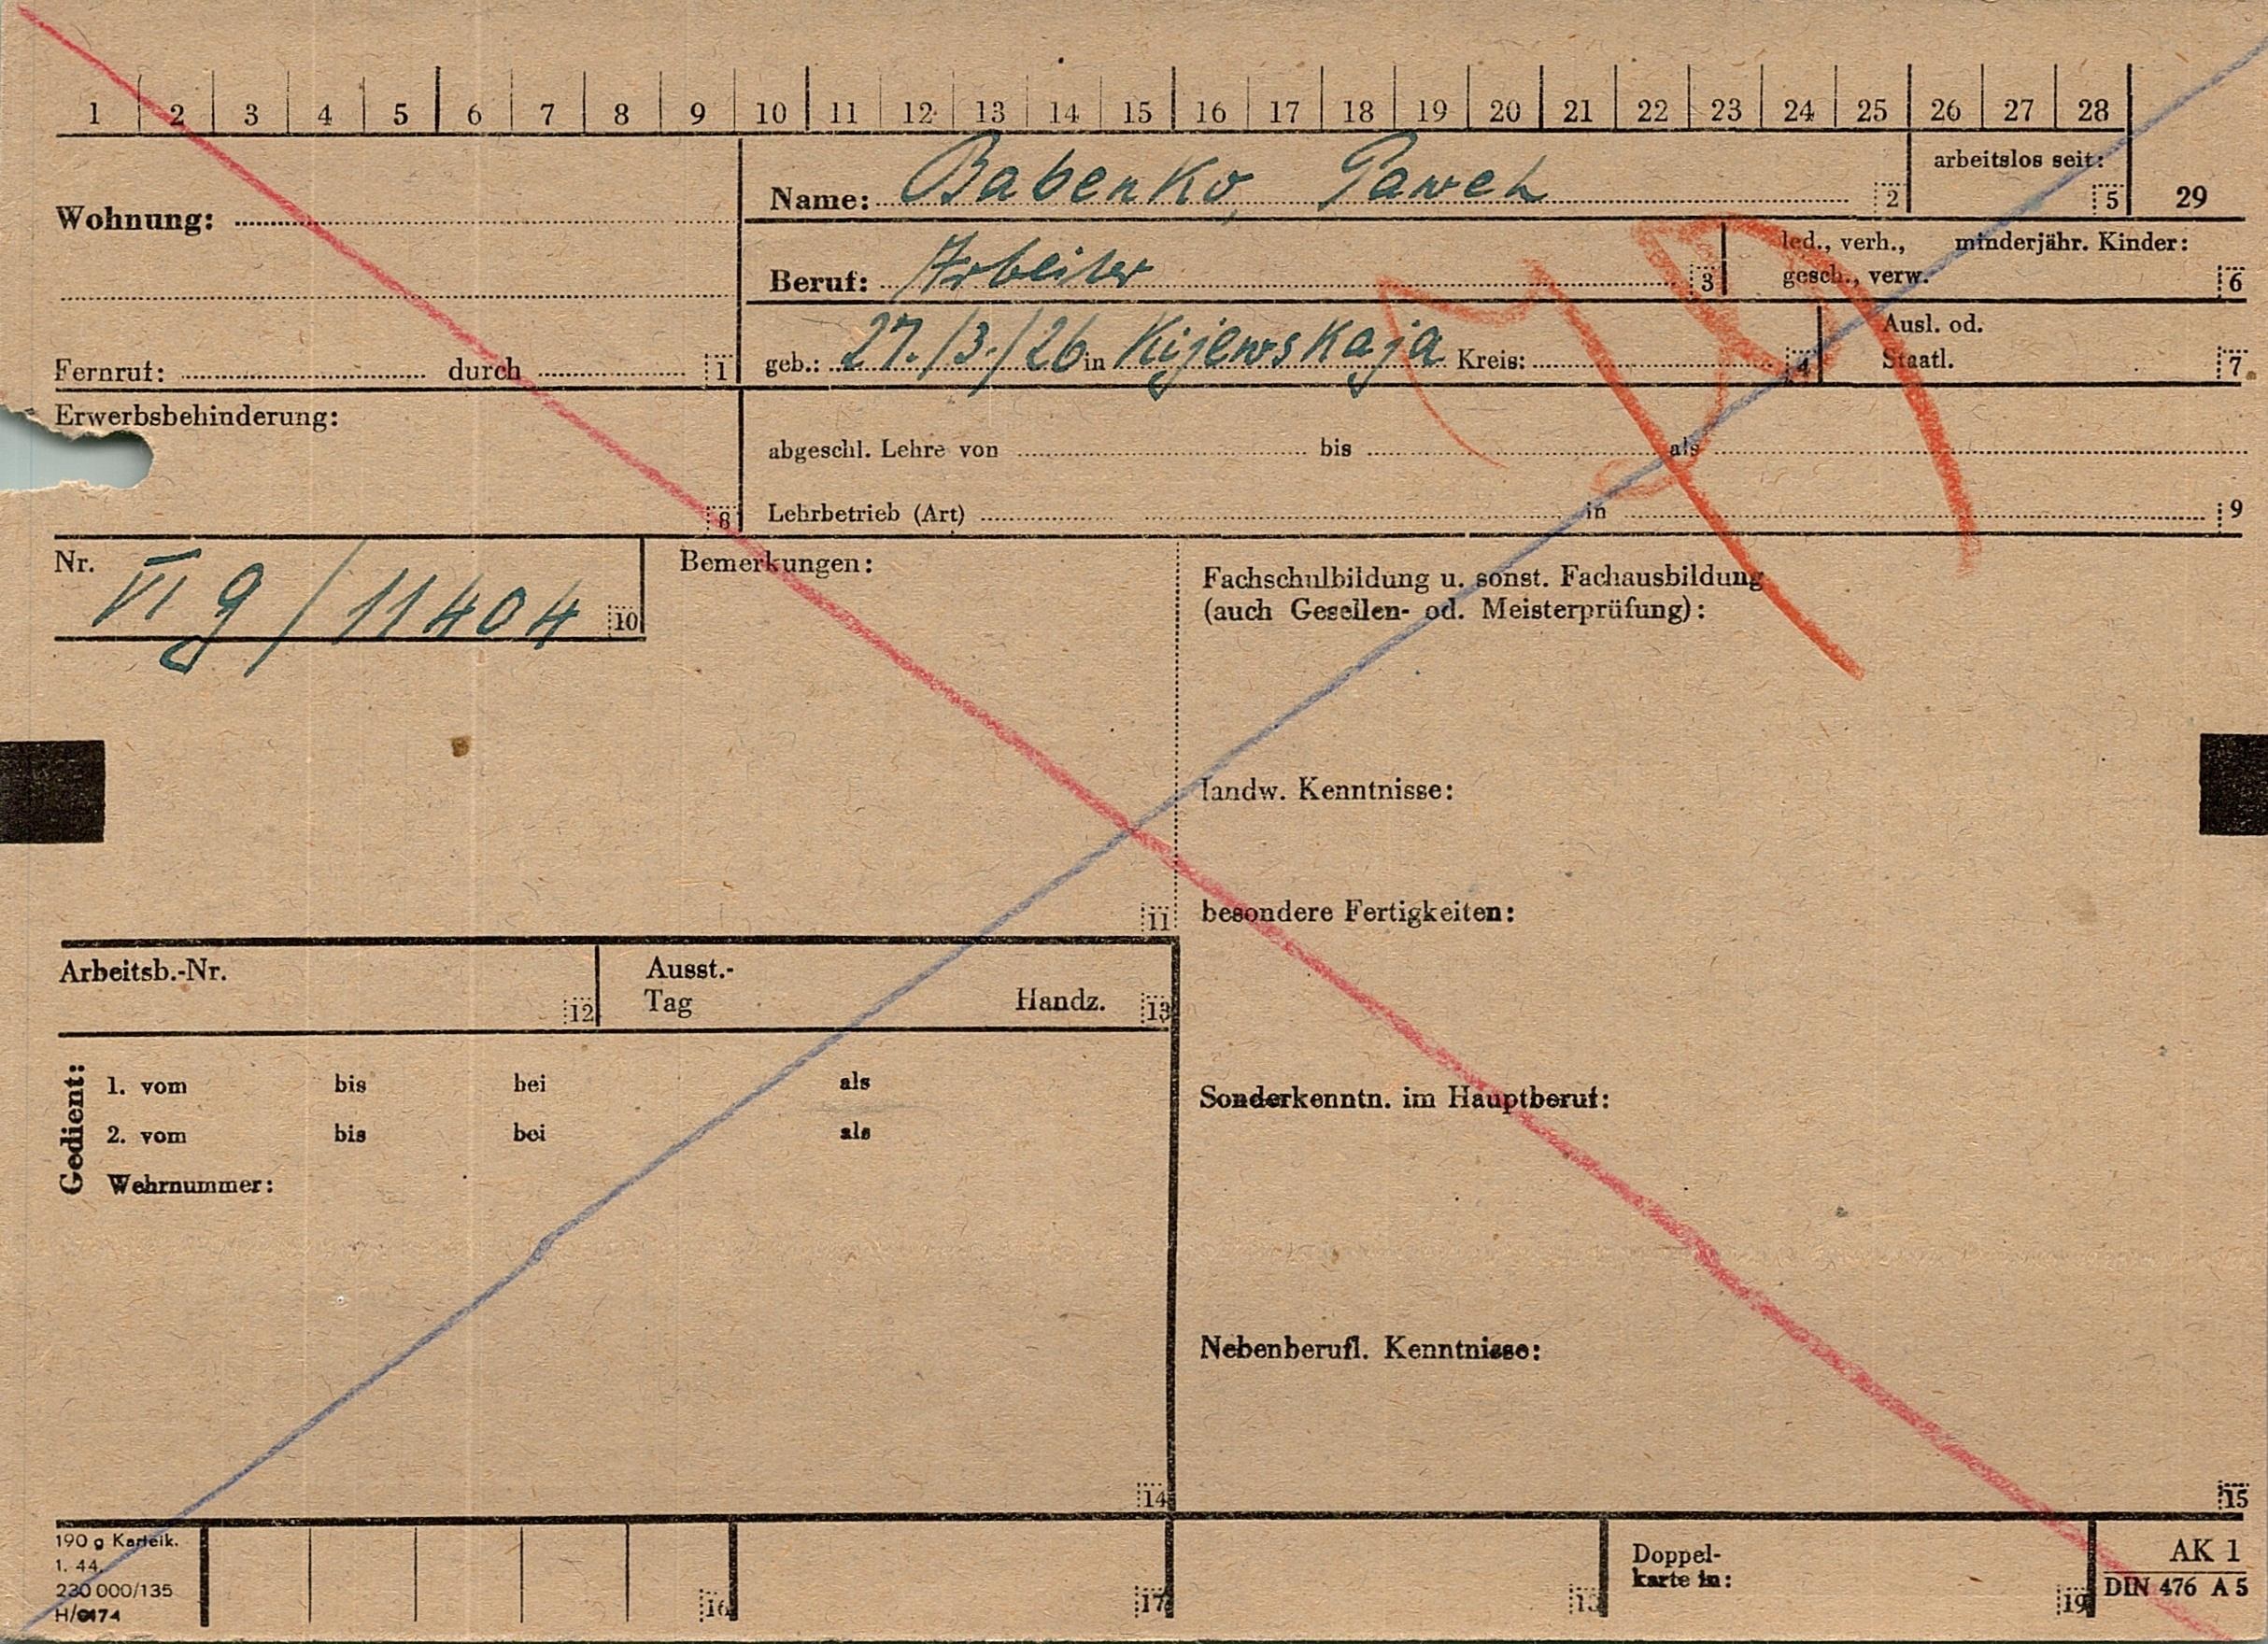 1 2 3 4 5 6 7 8 9 10 11 12 13 14 15 16 17 18 19 20 21 22 23 24 25 26 27 28
Name: Babenko, Pawel 2
arbeitslos seit: 5
29
Wohnung:
Beruf: Arbeiter 3
led., verh., minderjähr. Kinder:
gesch., verw. 6
geb.: 27./3./26 in Kijewskaja Kreis: 4
Ausl. od.
Staatl. 7
Fernruf: durch 1
Erwerbsbehinderung:
8
abgeschl. Lehre von bis als
Lehrbetrieb (Art) in 9
Nr. VI g / 11404 10
Bemerkungen:
11
Fachschulbildung u. sonst. Fachausbildung
(auch Gesellen- od. Meisterprüfung):
landw. Kenntnisse:
besondere Fertigkeiten:
Arbeitsb.-Nr. 12
Ausst.-
Tag Handz. 13
Gedient:
1. vom bis bei als
2. vom bis bei als
Wehrnummer:
14
Sonderkenntn. im Hauptberuf:
Nebenberufl. Kenntnisse:
15
190 g Karteik.
1. 44.
230 000/135
H/0174
16
17
Doppel-
karte in:
19
AK 1
DIN 476 A 5